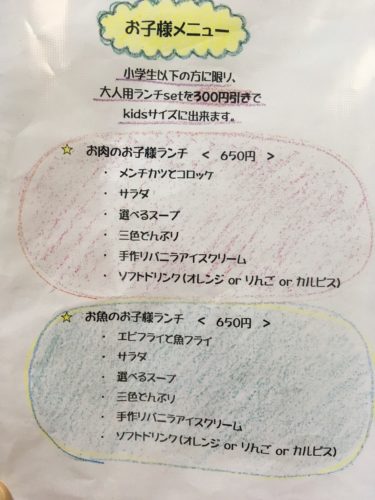 お子様メニュー
小学生以下の方に限り、
大人用ランチsetを300円引きで
kidsサイズに出来ます。
☆ お肉のお子様ランチ < 650円 >
・ メンチカツとコロッケ
・ サラダ
・ 選べるスープ
・ 三色どんぶり
・ 手作りバニラアイスクリーム
・ ソフトドリンク(オレンジ or りんご or カルピス)
☆ お魚のお子様ランチ < 650円 >
・ エビフライと魚フライ
・ サラダ
・ 選べるスープ
・ 三色どんぶり
・ 手作りバニラアイスクリーム
・ ソフトドリンク(オレンジ or りんご or カルピス)